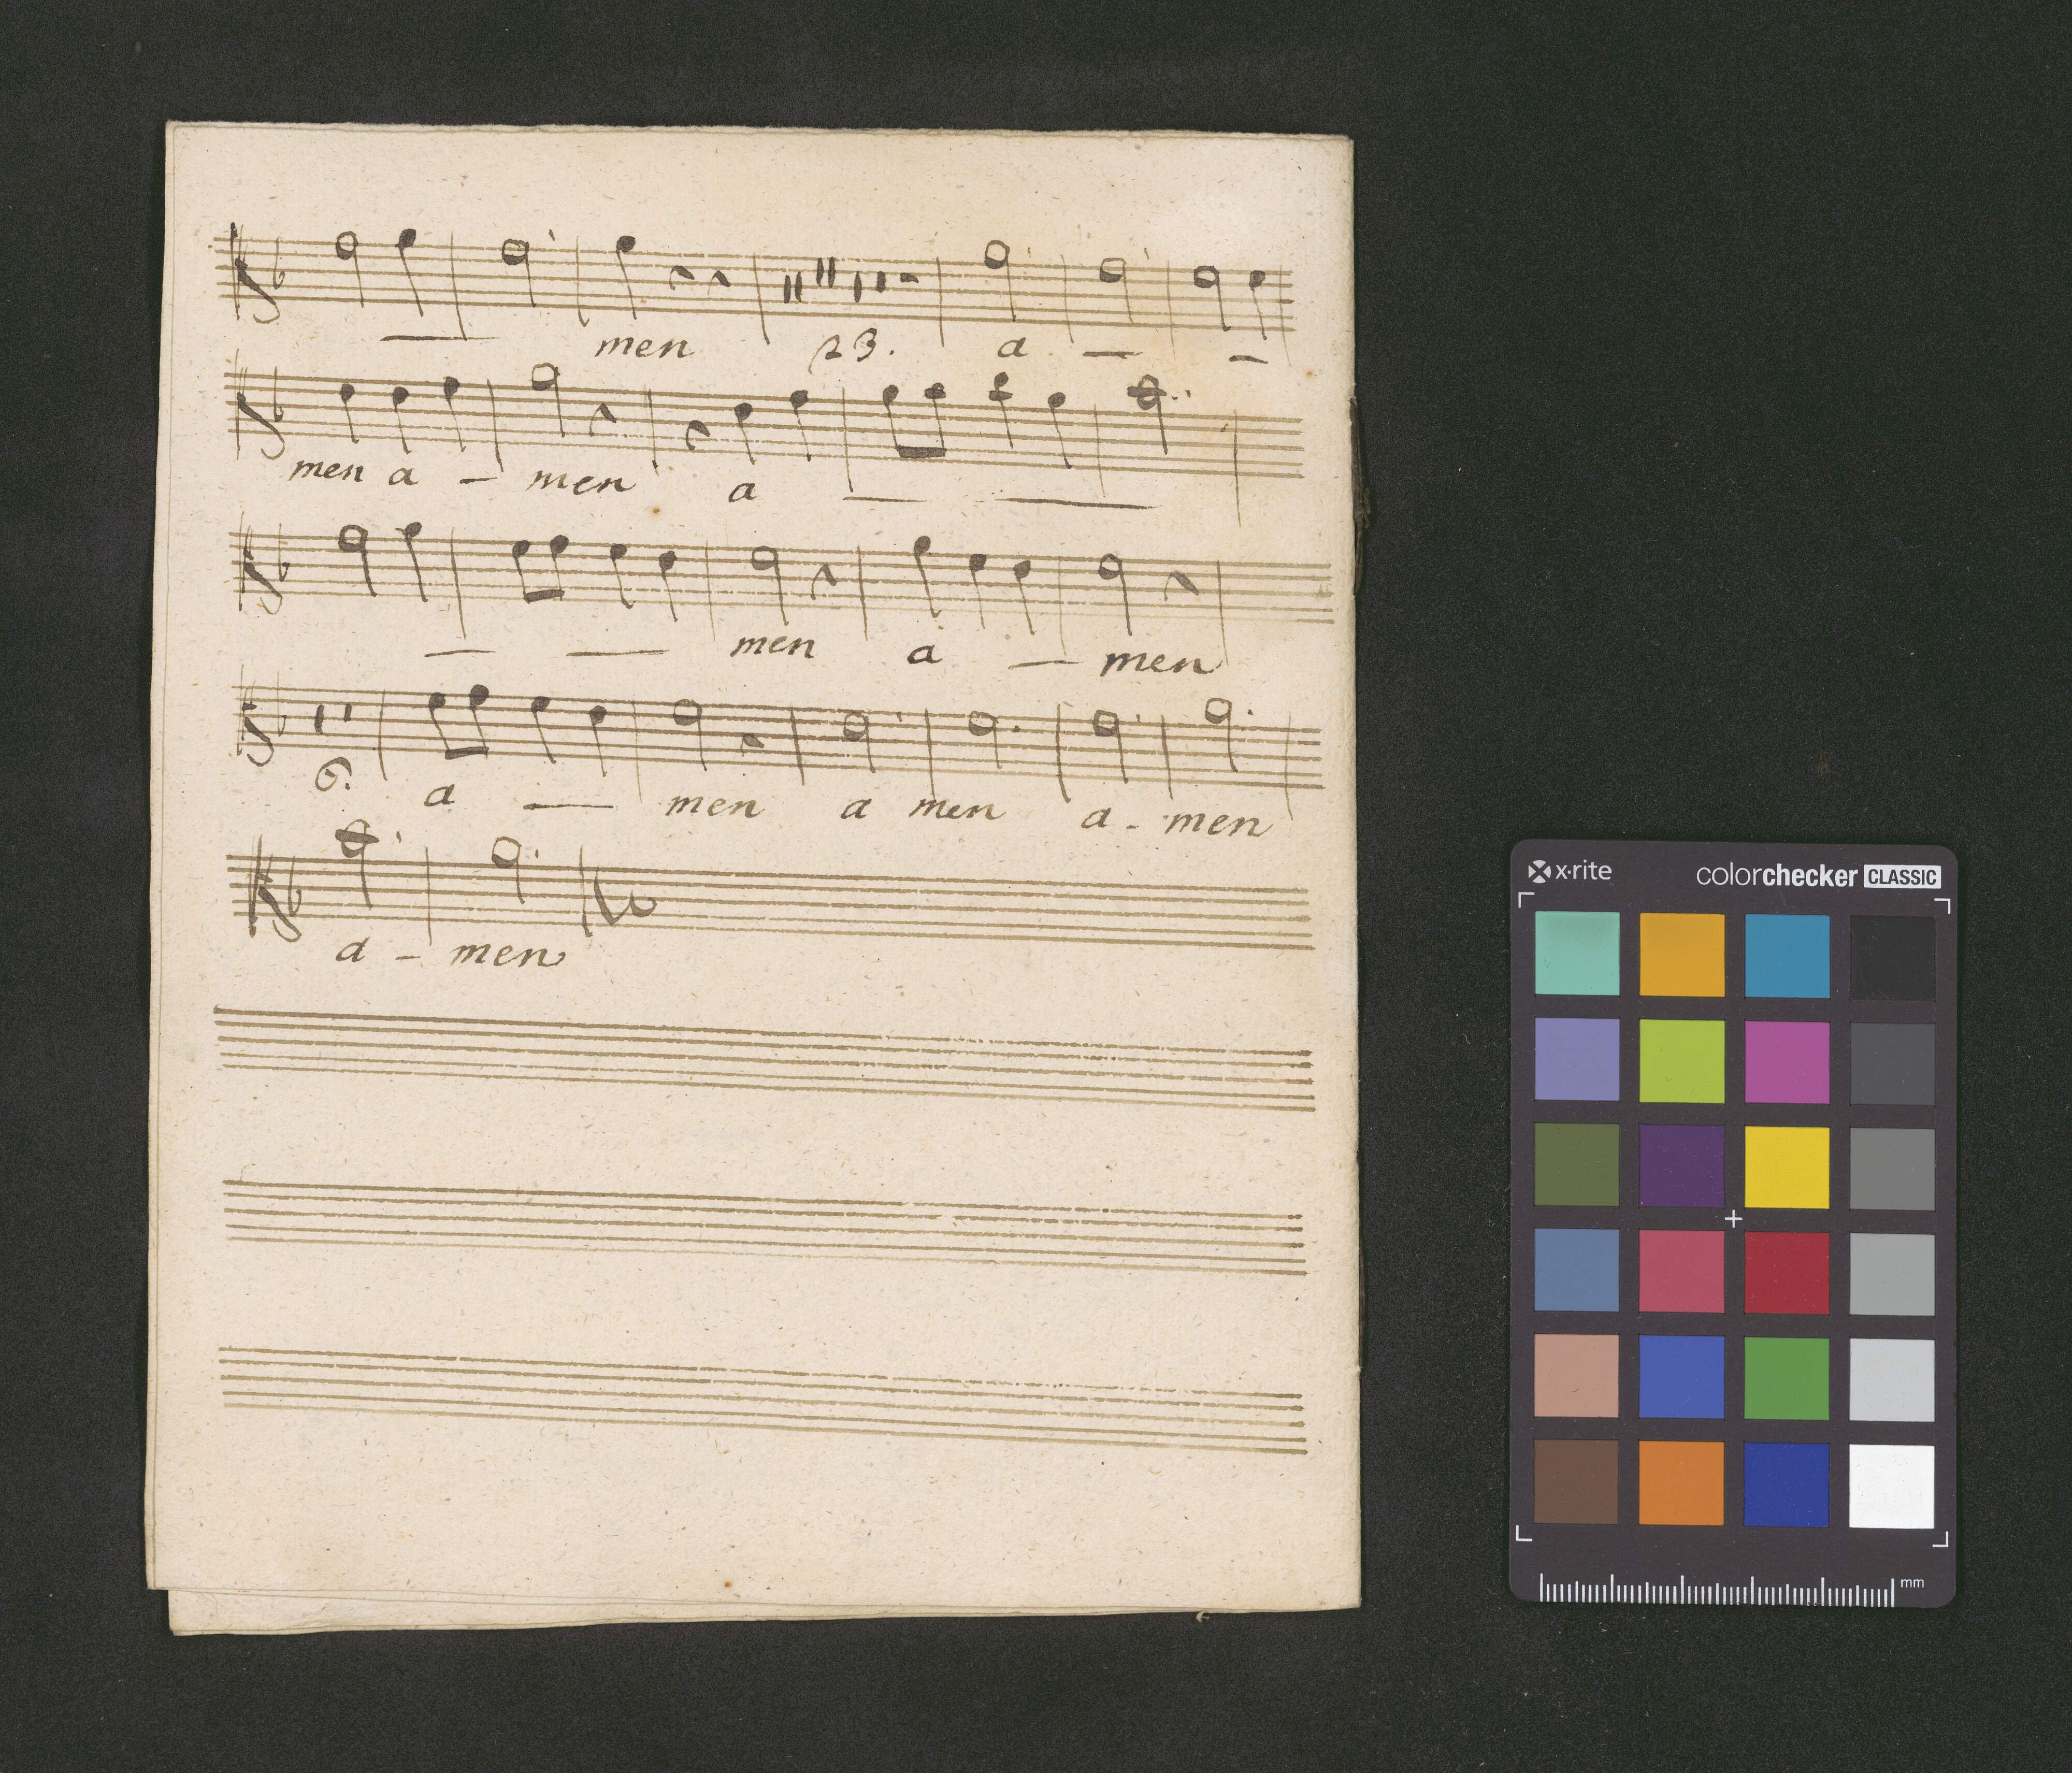 men 23. a — —
men a — men a — —
— — men a — men
6. a — men a men a - men
a - men
x·rite colorchecker CLASSIC
mm